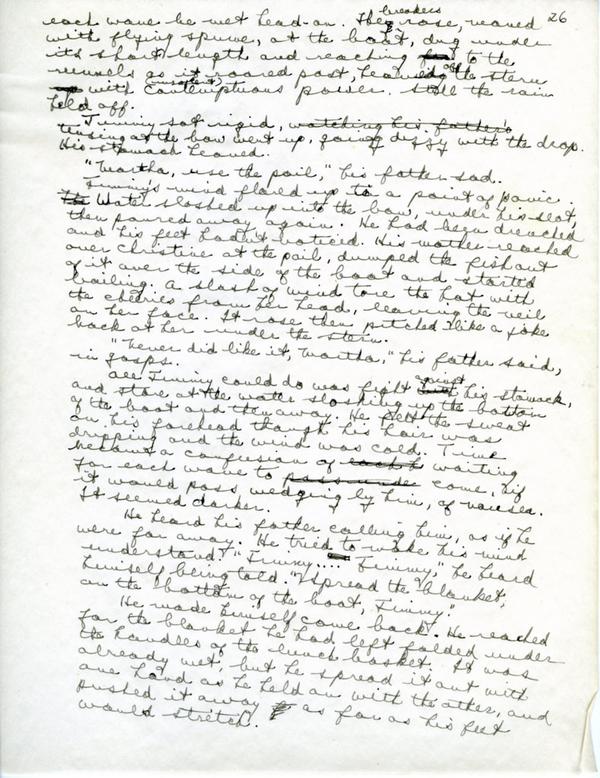 26
breakers
each wave he met head-on. They rose, waved
with flying spume, at the boat, dug under
its short length and reaching to the
runnels as it roared past, heaved the stern
with contemptuous power. Still the rain
held off.
Timmy sat rigid, watching his father's
tensing as the bow went up, going dizzy with the drop.
His stomach heaved.
"Martha, use the pail," his father said.
Timmy's mind flared up to a point of panic.
The Water sloshed up into the bow, under his seat,
then poured away again. He had been drenched
and his feet hadn't noticed. His mother reached
over Christine at the pail, dumped the fish out
of it over the side of the boat and started
bailing. A slash of wind tore the hat with
the cherries from her head, leaving the veil
on her face. It rose then pitched like a joke
back at her under the stern.
"Never did like it, Martha," his father said,
in gasps.
against
All Timmy could do was fight his stomach,
and stare at the water sloshing up the bottom
of the boat and then away. He felt the sweat
on his forehead though his hair was
dripping and the wind was cold. Time
became a confusion of each waiting
for each wave to pass under come, as if
it would pass wedging by him, of nausea.
It seemed darker.
He heard his father calling him, as if he
were far away. He tried to make his mind
understand. "Timmy.... Timmy," he heard
himself being told. "Spread the blanket,
on the bottom of the boat, Timmy."
He made himself come back. He reached
for the blanket he had left folded under
the handles of the lunch basket. It was
already wet, but he spread it out with
one hand as he held on with the other, and
pushed it away as far as his feet
would stretch.